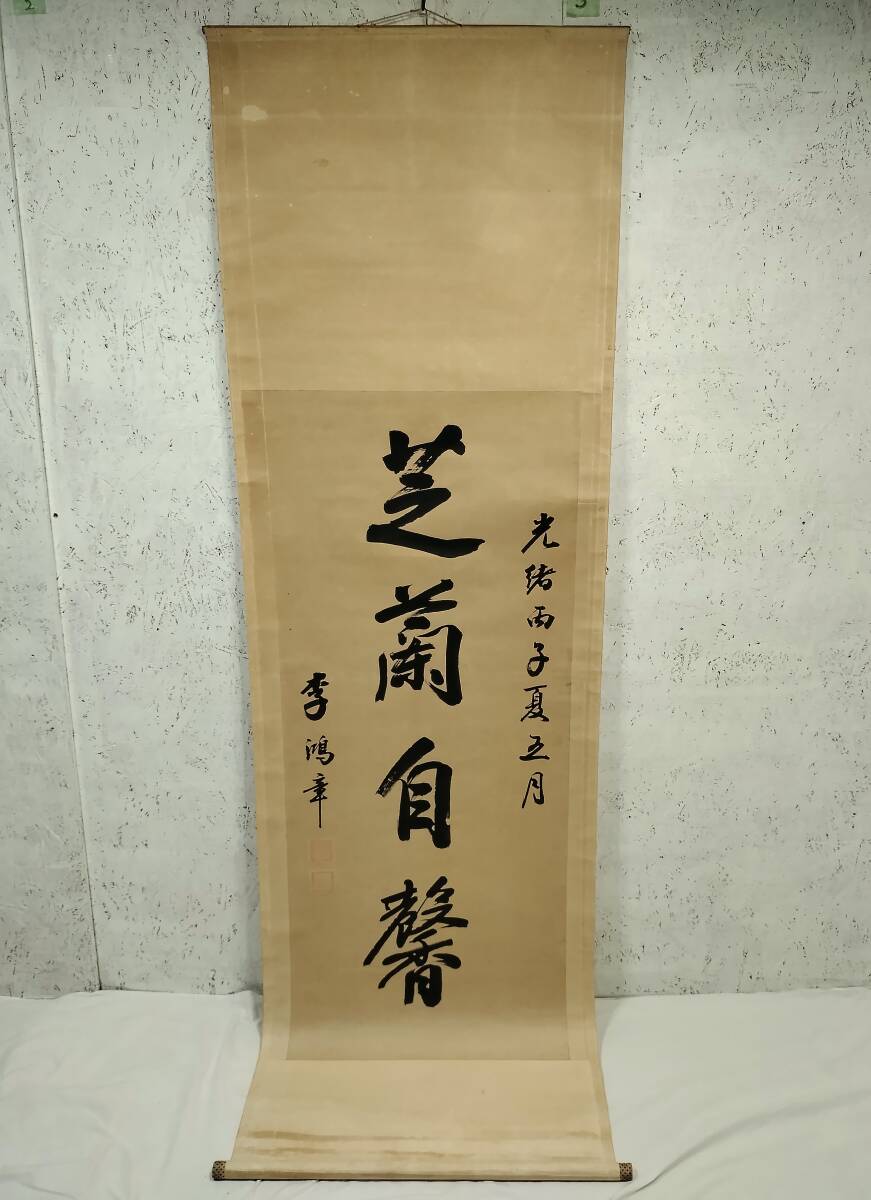 光緒丙子夏五月
芝蘭自馨
李鴻章
2